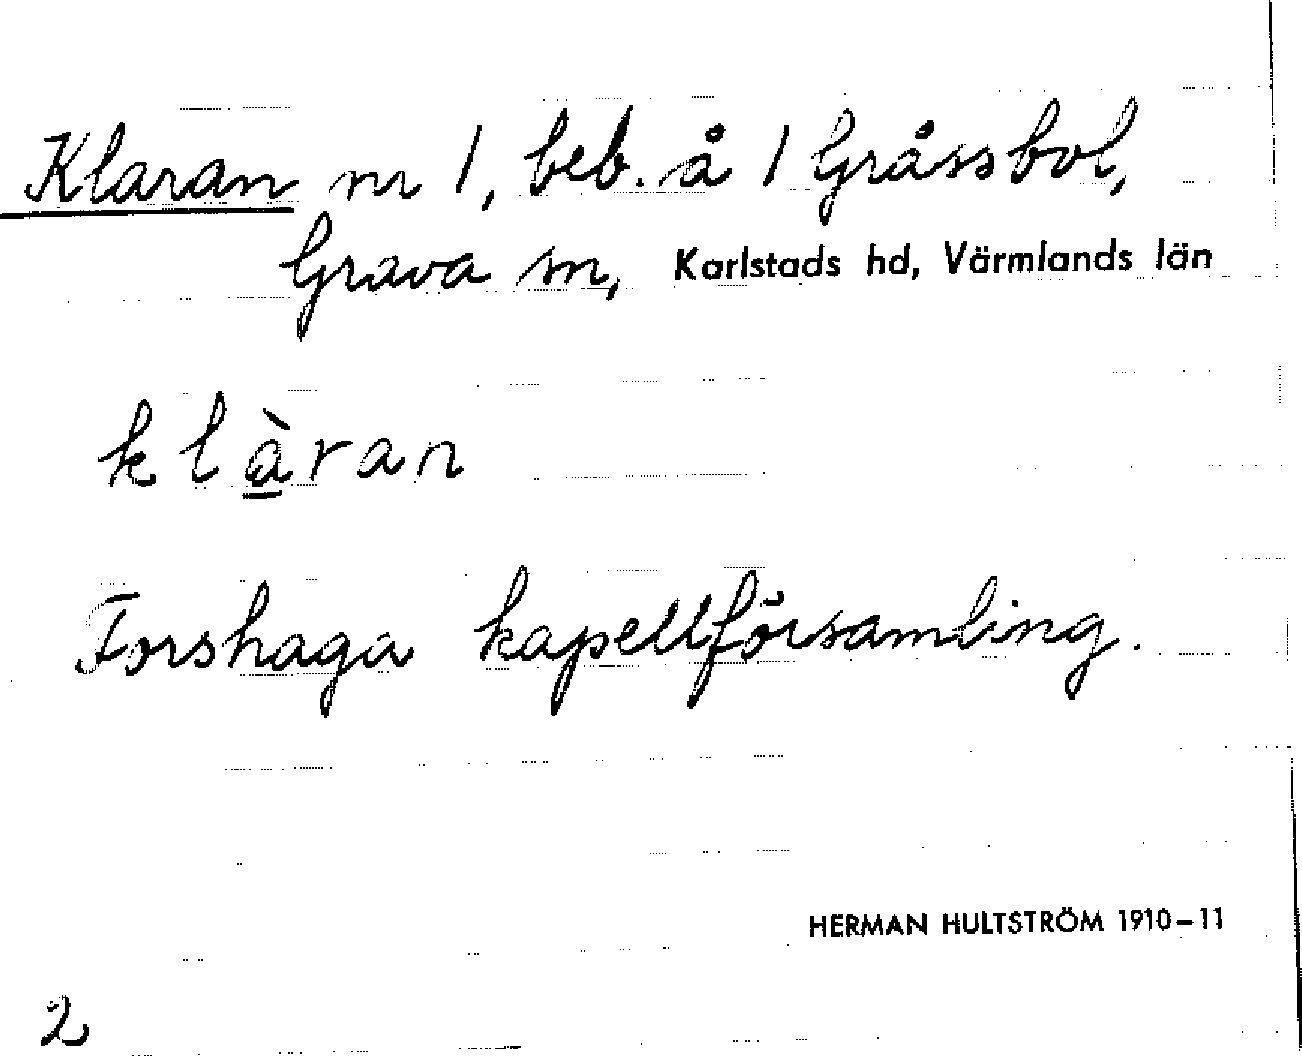 Klaran nr 1, beb. å 1 Gråssbol,
Grava sn, Karlstads hd, Värmlands län
klà̱ran
Forshaga kapellförsamling.
HERMAN HULTSTRÖM 1910–11
2